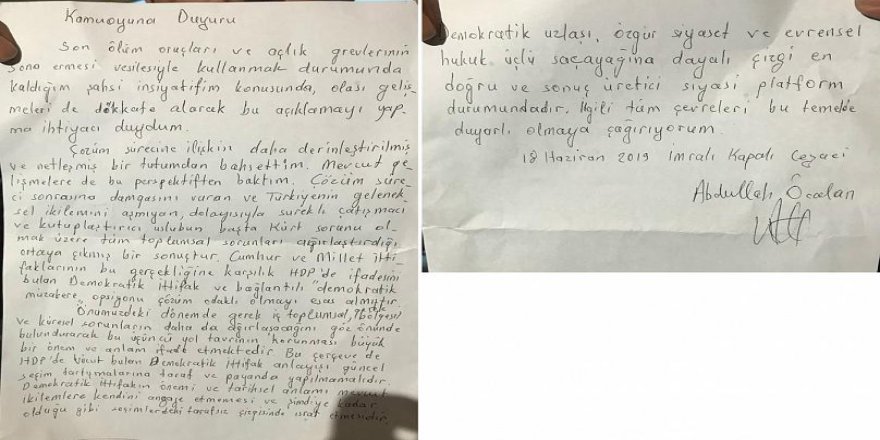 Kamuoyuna Duyuru
Son ölüm oruçları ve açlık grevlerinin
sona ermesi vesilesiyle kullanmak durumunda
kaldığım şahsi insiyatifim konusunda, olası geliş-
meleri de dikkate alarak bu açıklamayı yap-
ma ihtiyacı duydum.
Çözüm sürecine ilişkin daha derinleştirilmiş
ve netleşmiş bir tutumdan bahsettim. Mevcut ge-
lişmelere de bu perspektiften baktım. Çözüm süre-
ci sonrasına damgasını vuran ve Türkiyenin gelenek-
sel ikilemini aşmıyan, dolayısıyla sürekli çatışmacı
ve kutuplaştırıcı uslubun başta Kürt sorunu ol-
mak üzere tüm toplumsal sorunları ağırlaştırdığı
ortaya çıkmış bir sonuçtur. Cumhur ve Millet itti-
faklarının bu gerçekliğine karşılık HDP'de ifadesini
bulan Demokratik ittifak ve bağlantılı "demokratik
müzakere" opsiyonu çözüm odaklı olmayı esas almıştır.
Önümüzdeki dönemde gerek iç toplumsal, gerek bölgesel
ve küresel sorunların daha da ağırlaşacağını göz önünde
bulundurarak bu üçüncü yol tavrının korunması büyük
bir önem ve anlam ifade etmektedir. Bu çerçeve de
HDP'de vücut bulan Demokratik ittifak anlayışı güncel
seçim tartışmalarına taraf ve payanda yapılmamalıdır.
Demokratik ittifakın önemi ve tarihsel anlamı mevcut
ikilemlere kendini angaje etmemesi ve şimdiye kadar
olduğu gibi seçimlerdeki tarafsız çizgisinde ısrar etmesidir.
Demokratik uzlaşı, özgür siyaset ve evrensel
hukuk üçlü saçayağına dayalı çizgi en
doğru ve sonuç üretici siyasi platform
durumundadır. İlgili tüm çevreleri bu temelde
duyarlı olmaya çağırıyorum.
18 Haziran 2019 İmralı Kapalı Cezaevi
Abdullah Öcalan